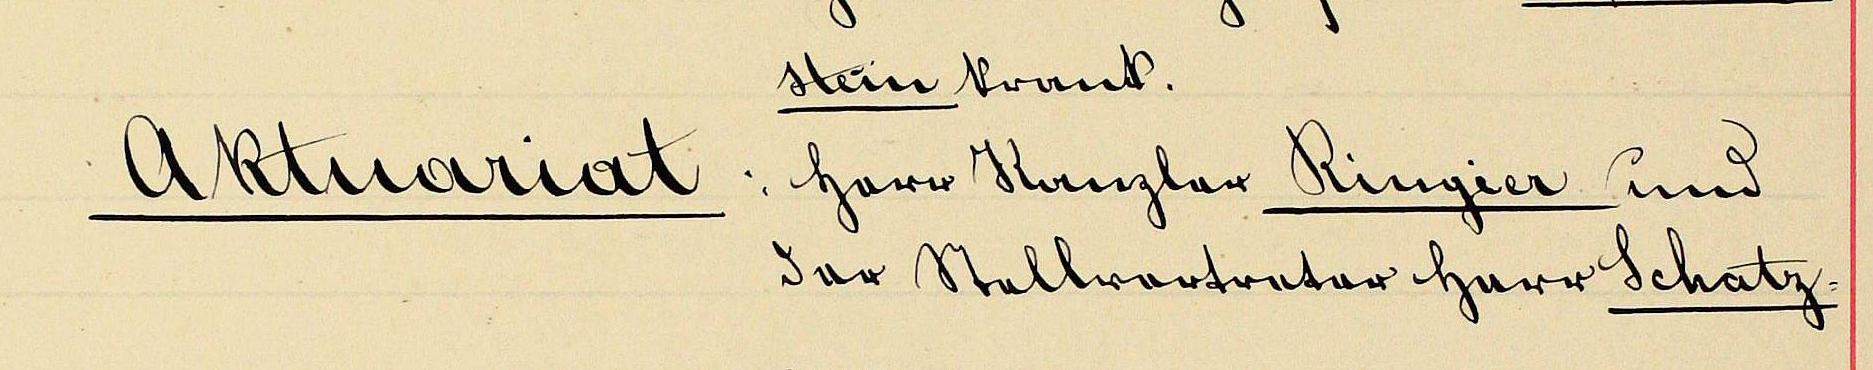 stein krank.
Aktuariat : Herr Kanzler Ringier und
der Stellvertreter Herr Schatz=